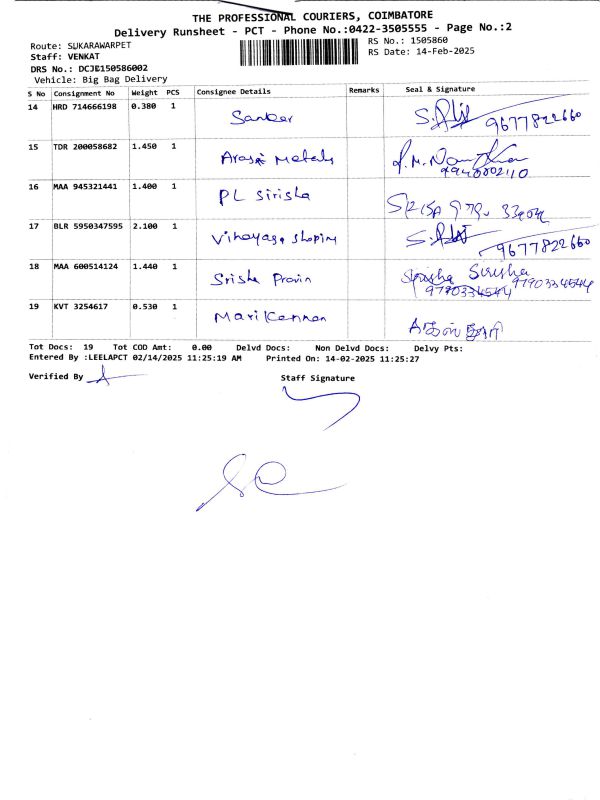 THE PROFESSIONAL COURIERS, COIMBATORE
Delivery Runsheet - PCT - Phone No.:0422-3505555 - Page No.:2
Route: SUKARAWARPET
RS No.: 1505860
Staff: VENKAT
RS Date: 14-Feb-2025
DRS No.: DCJE150586002
Vehicle: Big Bag Delivery
S No Consignment No Weight PCS Consignee Details Remarks Seal & Signature
14 HRD 714666198 0.380 1 Sanker 9677822660
15 TDR 200058682 1.450 1 Arasi Metals
16 MAA 945321441 1.400 1 PL Sirisha
17 BLR 5950347595 2.100 1 Vinayaga Shoping 9677822660
18 MAA 600514124 1.440 1 Srisha Pravin Sirusha Sirusha
9790334544 9790334544
19 KVT 3254617 0.530 1 Mari Kannan
Tot Docs: 19 Tot COD Amt: 0.00 Delvd Docs: Non Delvd Docs: Delvy Pts:
Entered By :LEELAPCT 02/14/2025 11:25:19 AM Printed On: 14-02-2025 11:25:27
Verified By
Staff Signature